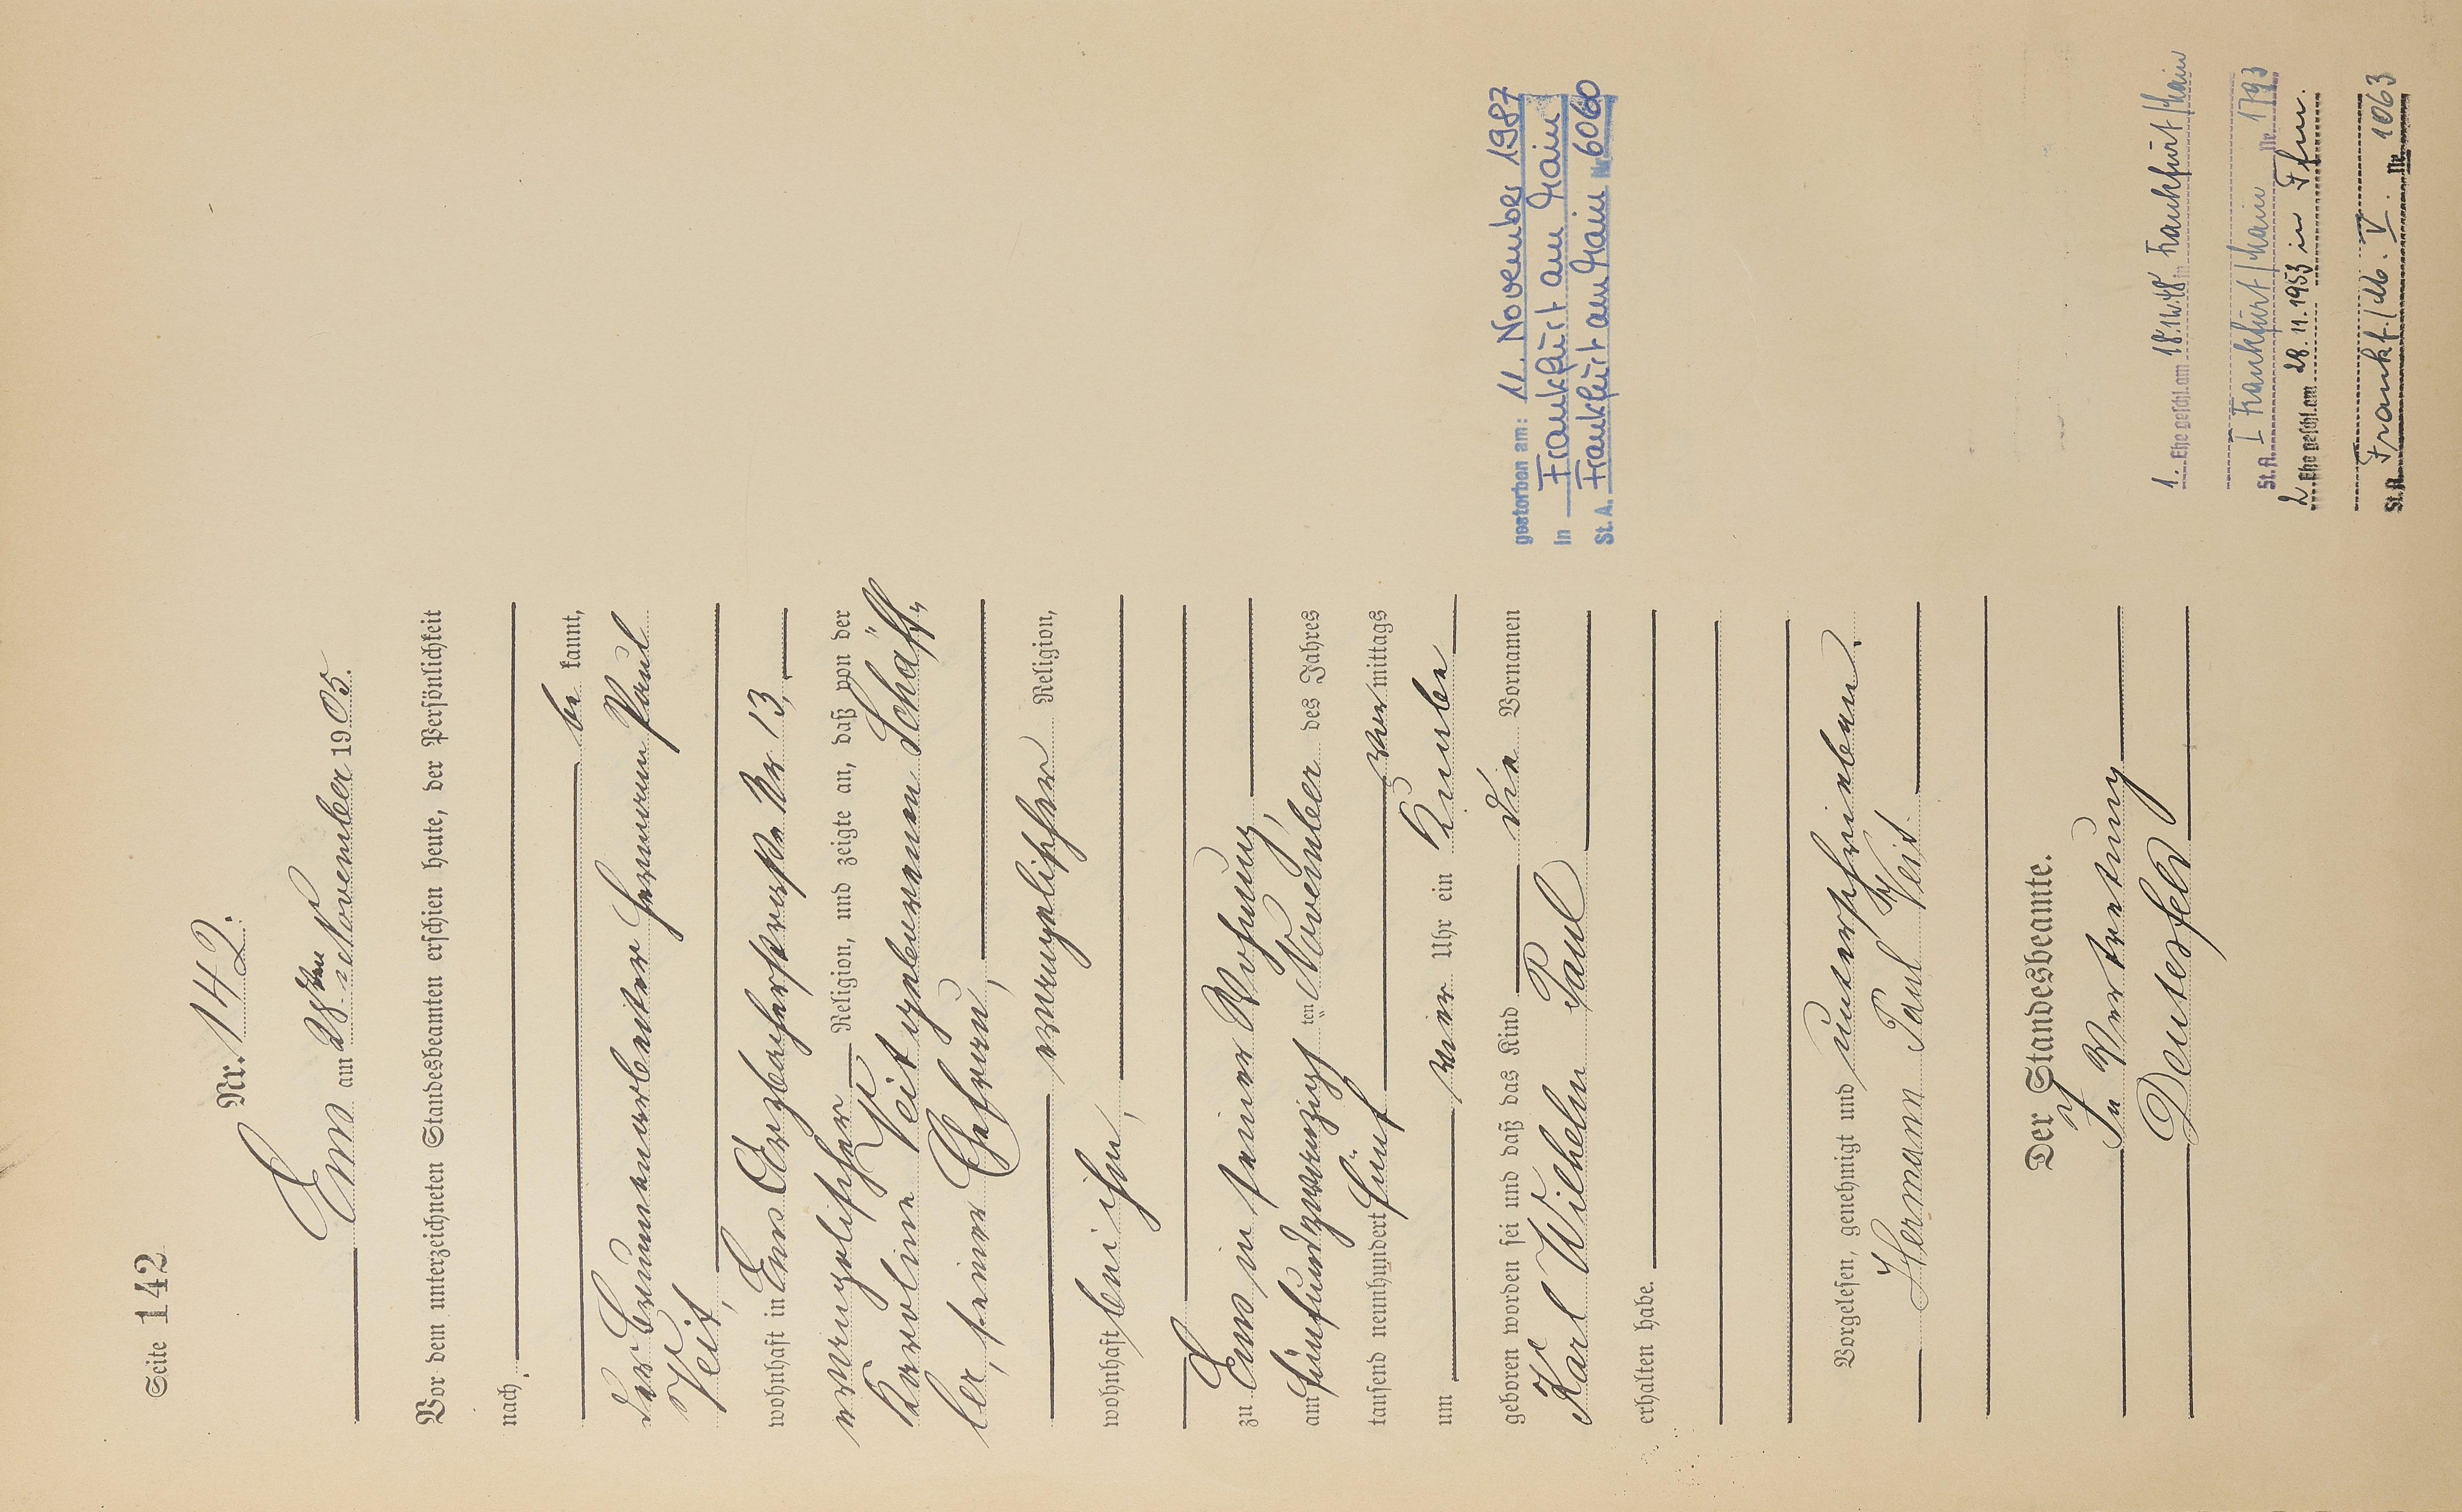 Seite 142
Nr. 142.
Ems am 28ten November 1905.
Vor dem unterzeichneten Standesbeamten erschien heute, der Persönlichkeit
nach,
be kannt,
der Brunnenarbeiter Hermann Paul
Veit,
wohnhaft in Ems Arzbacherstraße Nr 13,
evangelischer Religion, und zeigte an, daß von der
Karoline Veit geborenen Schäff„
ler, seiner Ehefrau,
evangelischer Religion,
wohnhaft bei ihm,
zu Ems in seiner Wohnung,
am fünfundzwanzigsten November des Jahres
tausend neunhundert fünf vor mittags
um vier Uhr ein Knabe
geboren worden sei und daß das Kind die Vornamen
Karl Wilhelm Paul
erhalten habe.
Vorgelesen, genehmigt und unterschrieben.
Hermann Paul Veit.
Der Standesbeamte.
In Vertretung
gestorben am: 11. November 1987
in Frankfurt am Main
St. A. Frankfurt am Main Nr. 6060
1. Ehe geschl. am in Frankfurt/Main
St. A. I Frankfurt/Main Nr. 1793
2. Ehe geschl. am 28.11.1953 in Ffm.
St. A. Frankf./M. V. Nr. 1063